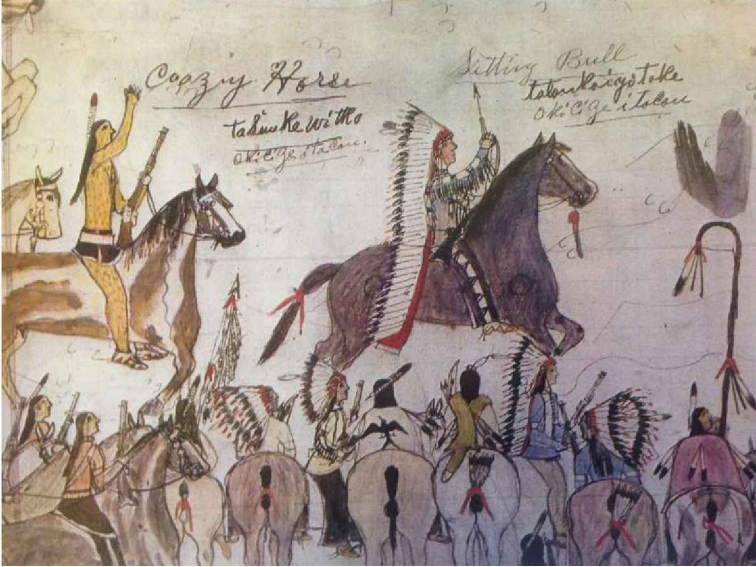 Coaziy Horse
tašunke witko
okicize itacan.
Sitting Bull
tatonkaigotoke
okicize itacan